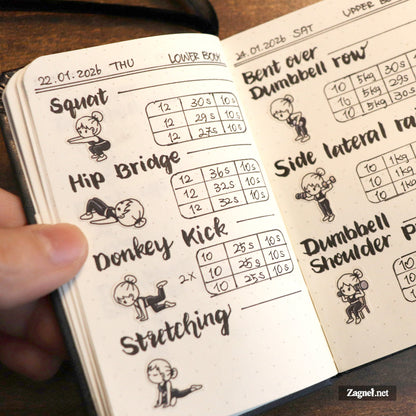 22.01.2026 THU LOWER BODY
Squat
12 30s 10s
12 29s 10s
12 27s 10s
Hip Bridge
12 36s 10s
12 32s 10s
12 32s 10s
Donkey Kick
2x
10 25s 10s
10 25s 10s
10 25s 10s
Stretching
24.01.2026 SAT UPPER
Bent over
Dumbbell row
10 5kg 30s
10 5kg 29s
10 5kg 30s
Side lateral
10 1kg
10 1kg
10 1kg
Dumbbell
Shoulder
10
10
10
Zagnel.net